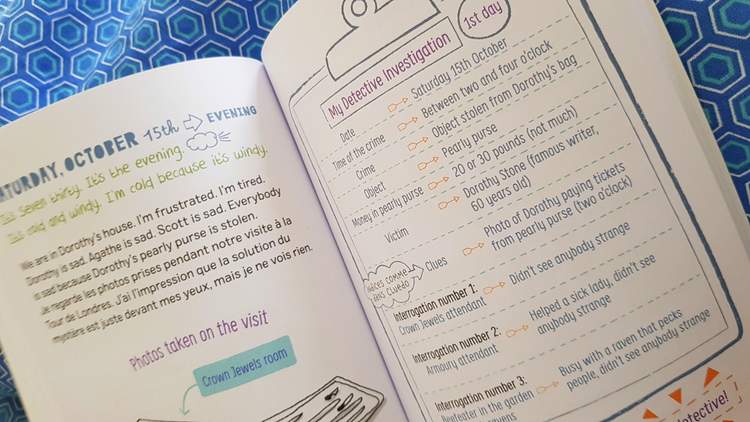 SATURDAY, OCTOBER 15th EVENING
It's seven thirty. It's the evening.
It's cold and windy. I'm cold because it's windy.
We are in Dorothy's house. I'm frustrated. I'm tired.
Dorothy is sad. Agathe is sad. Scott is sad. Everybody
is sad because Dorothy's pearly purse is stolen.
Je regarde les photos prises pendant notre visite à la
Tour de Londres. J'ai l'impression que la solution du
mystère est juste devant mes yeux, mais je ne vois rien.
Photos taken on the visit
Crown Jewels room
My Detective Investigation
1st day
Date Saturday 15th October
Time of the crime Between two and four o'clock
Crime Object stolen from Dorothy's bag
Object Pearly purse
Money in pearly purse 20 or 30 pounds (not much)
Victim Dorothy Stone (famous writer,
60 years old)
Clues Photo of Dorothy paying tickets
from pearly purse (two o'clock)
INDICES COMME
DANS CLUEDO
Interrogation number 1:
Crown Jewels attendant
Didn't see anybody strange
Interrogation number 2:
Armoury attendant
Helped a sick lady, didn't see
anybody strange
Interrogation number 3:
Beefeater in the garden
ravens
Busy with a raven that pecks
people, didn't see anybody strange
detective!